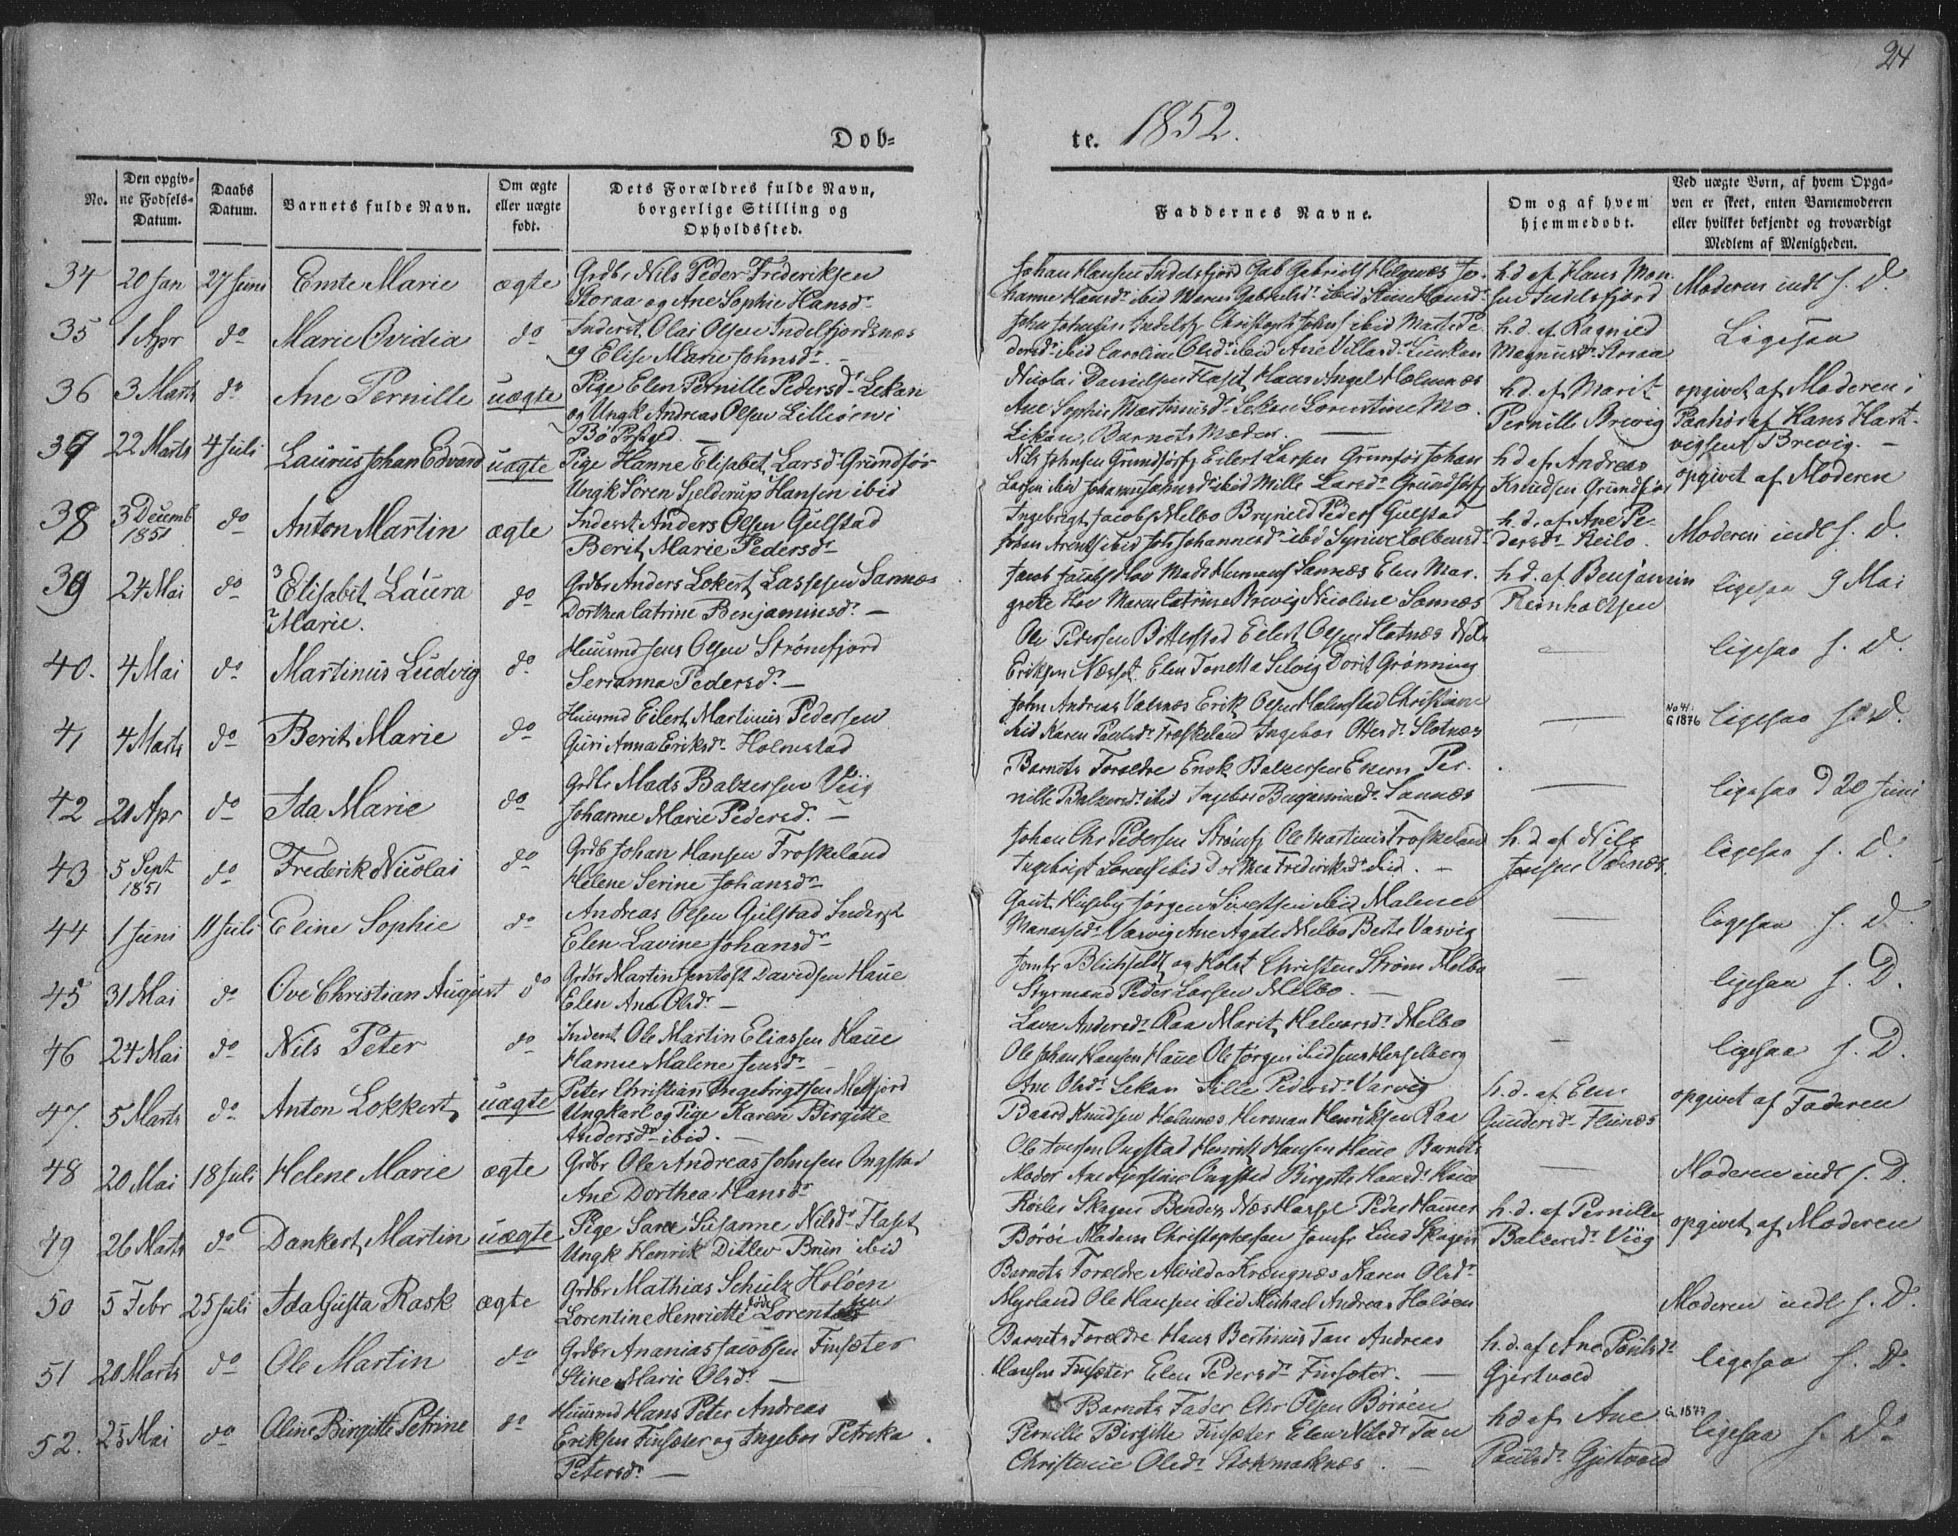 24
Døb-
te. 1852.
No.
Den opgiv-
ne Fødsels-
Datum.
Daabs
Datum.
Barnets fulde Navn.
Om ægte
eller uægte
født.
Dets Forældres fulde Navn,
borgerlige Stilling og
Opholdssted.
Faddernes Navne.
Om og af hvem
hjemmedøbt.
Ved uægte Børn, af hvem Opga-
ven er skeet, enten Barnemoderen
eller hvilket bekjendt og troværdigt
Medlem af Menigheden.
34 20 Jan 27 Juni Emte Marie ægte Grdbr Nils Peder Frideriksen
Storaa og Ane Sophie Hansdr
Johan Hansen Indelsfjord Gab Gabriels Helgenæs Jo-
hanne Hansdr ibid Maren Gabrielsdr ibid Stine Hansdr
h. d. af Hans Mon-
sen Indelsfjord
Moderen indl s. D.
35 1 Apr do Marie Ovidia do Inderst Olai Olsen Indelfjordsnæs
og Elise Marie Johnsdr
John Johnsen Indelsfj Christoph Johns ibid Marte Pe-
dersdr ibid Caroline Olsdr ibid Ane Villasdr
h. d. af Ragnild
Magnusdr Storaa
Ligesaa
36 3 Marts do Ane Pernille uægte Pige Elen Pernille Pedersdr Lekan
og Ungk Andreas Olsen
Bø Prstgd
Nicolai Danielsen Flaset Hans Angel Holmnæs
Ane Sophie Martinusdr Lekan Lorentine Mo
Lekan, Barnets Moder
h. d. af Marit
Pernille Brevig
opgivet af Moderen i
Paahør af Hans Hart-
vigsen Brevig.
37 22 Marts 4 Juli Laurus Johan Edvard uægte Pige Hanne Elisabet Larsdr Grundfør
Ungk Søren Sjelderup Hansen ibid
Nils Johnsen Grundførfj Eilert Larsen Grunfør Johan
Larsen ibid ibid Mille Larsdr Grundførfj
h. d. af Andreas
Knudsen Grundfør
opgivet af Moderen
38 3 Decemb 1851 do Anton Martin ægte Inderst Anders Olsen Gulstad
Berit Marie Pedersdr
Ingebrigt Jacobs Melbo Brynild Peders Gulstad
ibid Johannesdr ibid
h. d. af Ane Pe-
dersdr
Moderen indl s. D.
39 24 Mai do Elisabet Laura
Marie.
do Grdbr Anders Lokert Lassesen Sannæs
Dorthea Catrine Benjaminsdr
Jacob Jacobs Hov Mads Hermans Sannæs Elen Mar-
grete Hov Maren Catrine Brevig Nicoline Sannæs
h. d. af Benjamin
Reinholtsen
ligesaa 9 Mai
40. 4 Mai do Martinus Ludvig do Huusmd Jens Olsen Strømfjord
Serianna Pedersdr
Ole Pedersen Bitterstad Eilert Olsen Slotnæs Nils
Eriksen Elen Tonetta Selvig Dorit Grønning
ligesaa s. D.
41 4 Marts do Berit Marie do Huusmd Eilert Martinus Pedersen
Guri Anna Eriksdr Holmstad
John Andreas Valsnæs Erik Olsen Holmstad Christiane
ibid Karen Paulsdr Froskeland Ingebor Ottersdr Slotnæs
No 41: G 1876
ligesaa s. D.
42 20 Apr do Ida Marie do Grdbr Mads Balzersen Viig
Johanne Marie Pedersdr
Barnets Forældre Enok Balzersen Ekern Per-
nille Balzersdr ibid Ingebor Benjaminsdr Sannæs
ligesaa D 20 Juni
43 5 Sept 1851 do Frederik Nicolai do Grdb Johan Hansen Froskeland
Helene Serine Johansdr
Johan Chr Pedersen Strømfj Ole Martinus Froskeland
Ingebrigt Lorents ibid Dorthea Frederiksdr ibid.
h. d af Nils
Jensen Valsnæs.
ligesaa s. D.
44 1 Juni 11 Juli Eline Sophie do Andreas Olsen Gulstad Inderst
Elen Lavine Johansdr
Gaut Husby Jørgen Sivertsen ibid Malene
Monsesdr Varvig Ane Agate Melbo Berte Varvig
ligesaa s. D.
45 31 Mai do Ove Christian August do Grdbr Martin Jentoft Davidsen Haue
Elen Ane Olsdr
Jomfr Blichfeldt og Holst Christen Strøm Melbo
Styrmand Peder Larsen Melbo.
ligesaa s. D.
46 24 Mai do Nils Peter do Inderst Ole Martin Eliassen Haue
Hanne Malene Jensdr
Lava Andersdr Raa Marit Halvorsdr Melbo
Ole Johan Hansen Haue Ole Jørgen ibid Jens Hesselberg
ligesaa s. D.
47. 5 Marts do Anton Lokkert uægte Peter Christian Ingebrigtsen Melfjord
Ungkarl og Pige Karen Birgitte
Andersdr ibid.
Ane Olsdr Lekan Sille Pedersdr Varvig
Baard Knudsen Holmnæs Herman Henriksen Raa
h. d. af Elen
Gundersdr Flinæs
opgivet af Faderen
48 20 Mai 18 Juli Helene Marie ægte Grdbr Ole Andreas Johnsen Ongstad
Ane Dorthea Hansdr
Ole Iversen Ongstad Henrik Hansen Haue Barnets
Moder Ane Kjerstine Ongstad Birgitte Hansdr Haue
Moderen indl s. D.
49 26 Marts do Dankert Martin uægte Pige Sara Susanne Nilsdr Flaset
Ungk Henrik Ditlev Brun ibid
Røeler Skagen Bendez Peder Hamer
Børøi Madam Christophersen Jomfr Lind Skagen
h. d. af Pernille
Balzersdr Viig
opgivet af Moderen
50 5 Febr 25 Juli Ida Gusta Rask ægte Grdbr Mathias Schulz Holøen
Lorentine Henriette født Lorentzen
Barnets Forældre Alvilda Krongnæs Karen Olsdr
Myrland Ole Hansen ibid Michael Andreas Holøen
Moderen indl s. D.
51 20 Marts do Ole Martin do Grdbr Ananias Jacobsen Finsæter
Stine Marie Olsdr
Barnets Forældre Hans Bertinus Tan Andreas
Hansen Finsæter Elen Pedersdr Finsæter.
h. d. af Ane Paulsdr
Gjertvold
ligesaa s. D.
52. 23 Mai do Oline Birgitte Petrine do Huusmd Hans Peter Andreas
Eriksen Finsæter og Ingebor Petrika
Petersdr
Barnets Fader Chr Olsen Børøen
Pernille Birgitte Finsæter Elen Nilsdr Tan
Christiane Olsdr Stokmarknæs
h. d af Ane
Paulsdr Gjertvold
G. 1877
ligesaa s. D.